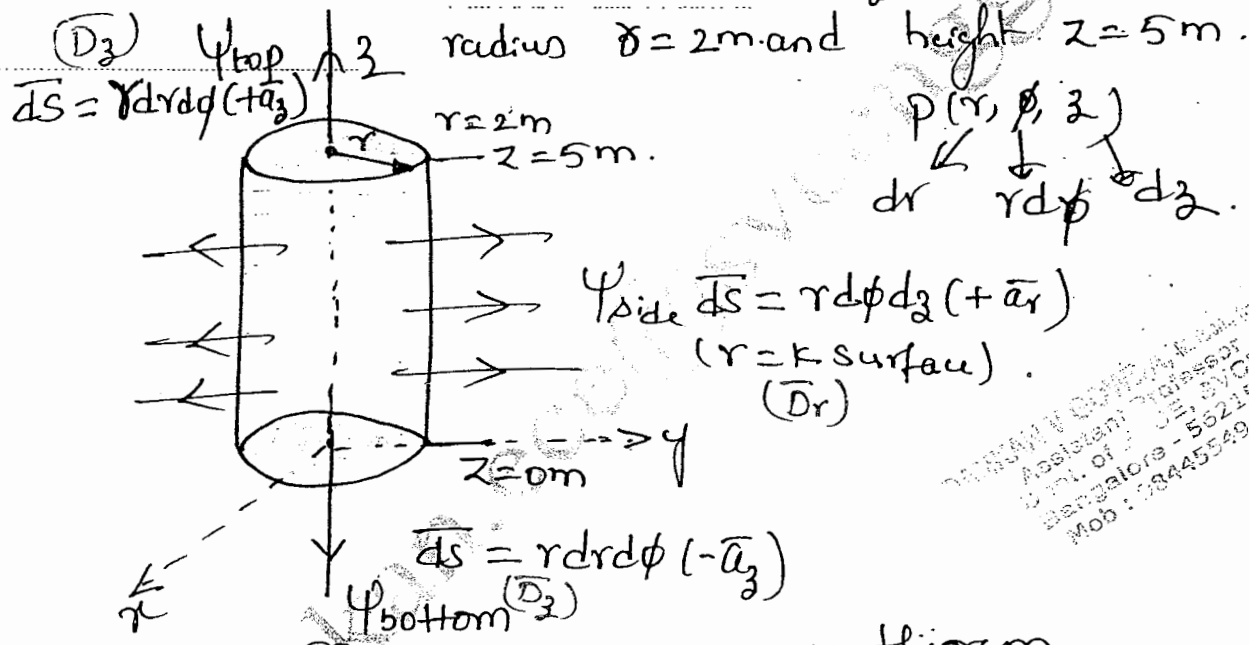 (D̅z) ψtop z radius r = 2m and height z = 5m.
d̅s̅ = rdrdφ(+a̅z)
r = 2m
r
z = 5m.
P(r, φ, z)
dr rdφ dz.
ψside d̅s̅ = rdφdz(+a̅r)
(r = k surface).
(D̅r)
y
z = 0m
d̅s̅ = rdrdφ(-a̅z)
x
ψbottom (D̅z)
Assistant Professor
Bangalore - 5621
Mob :